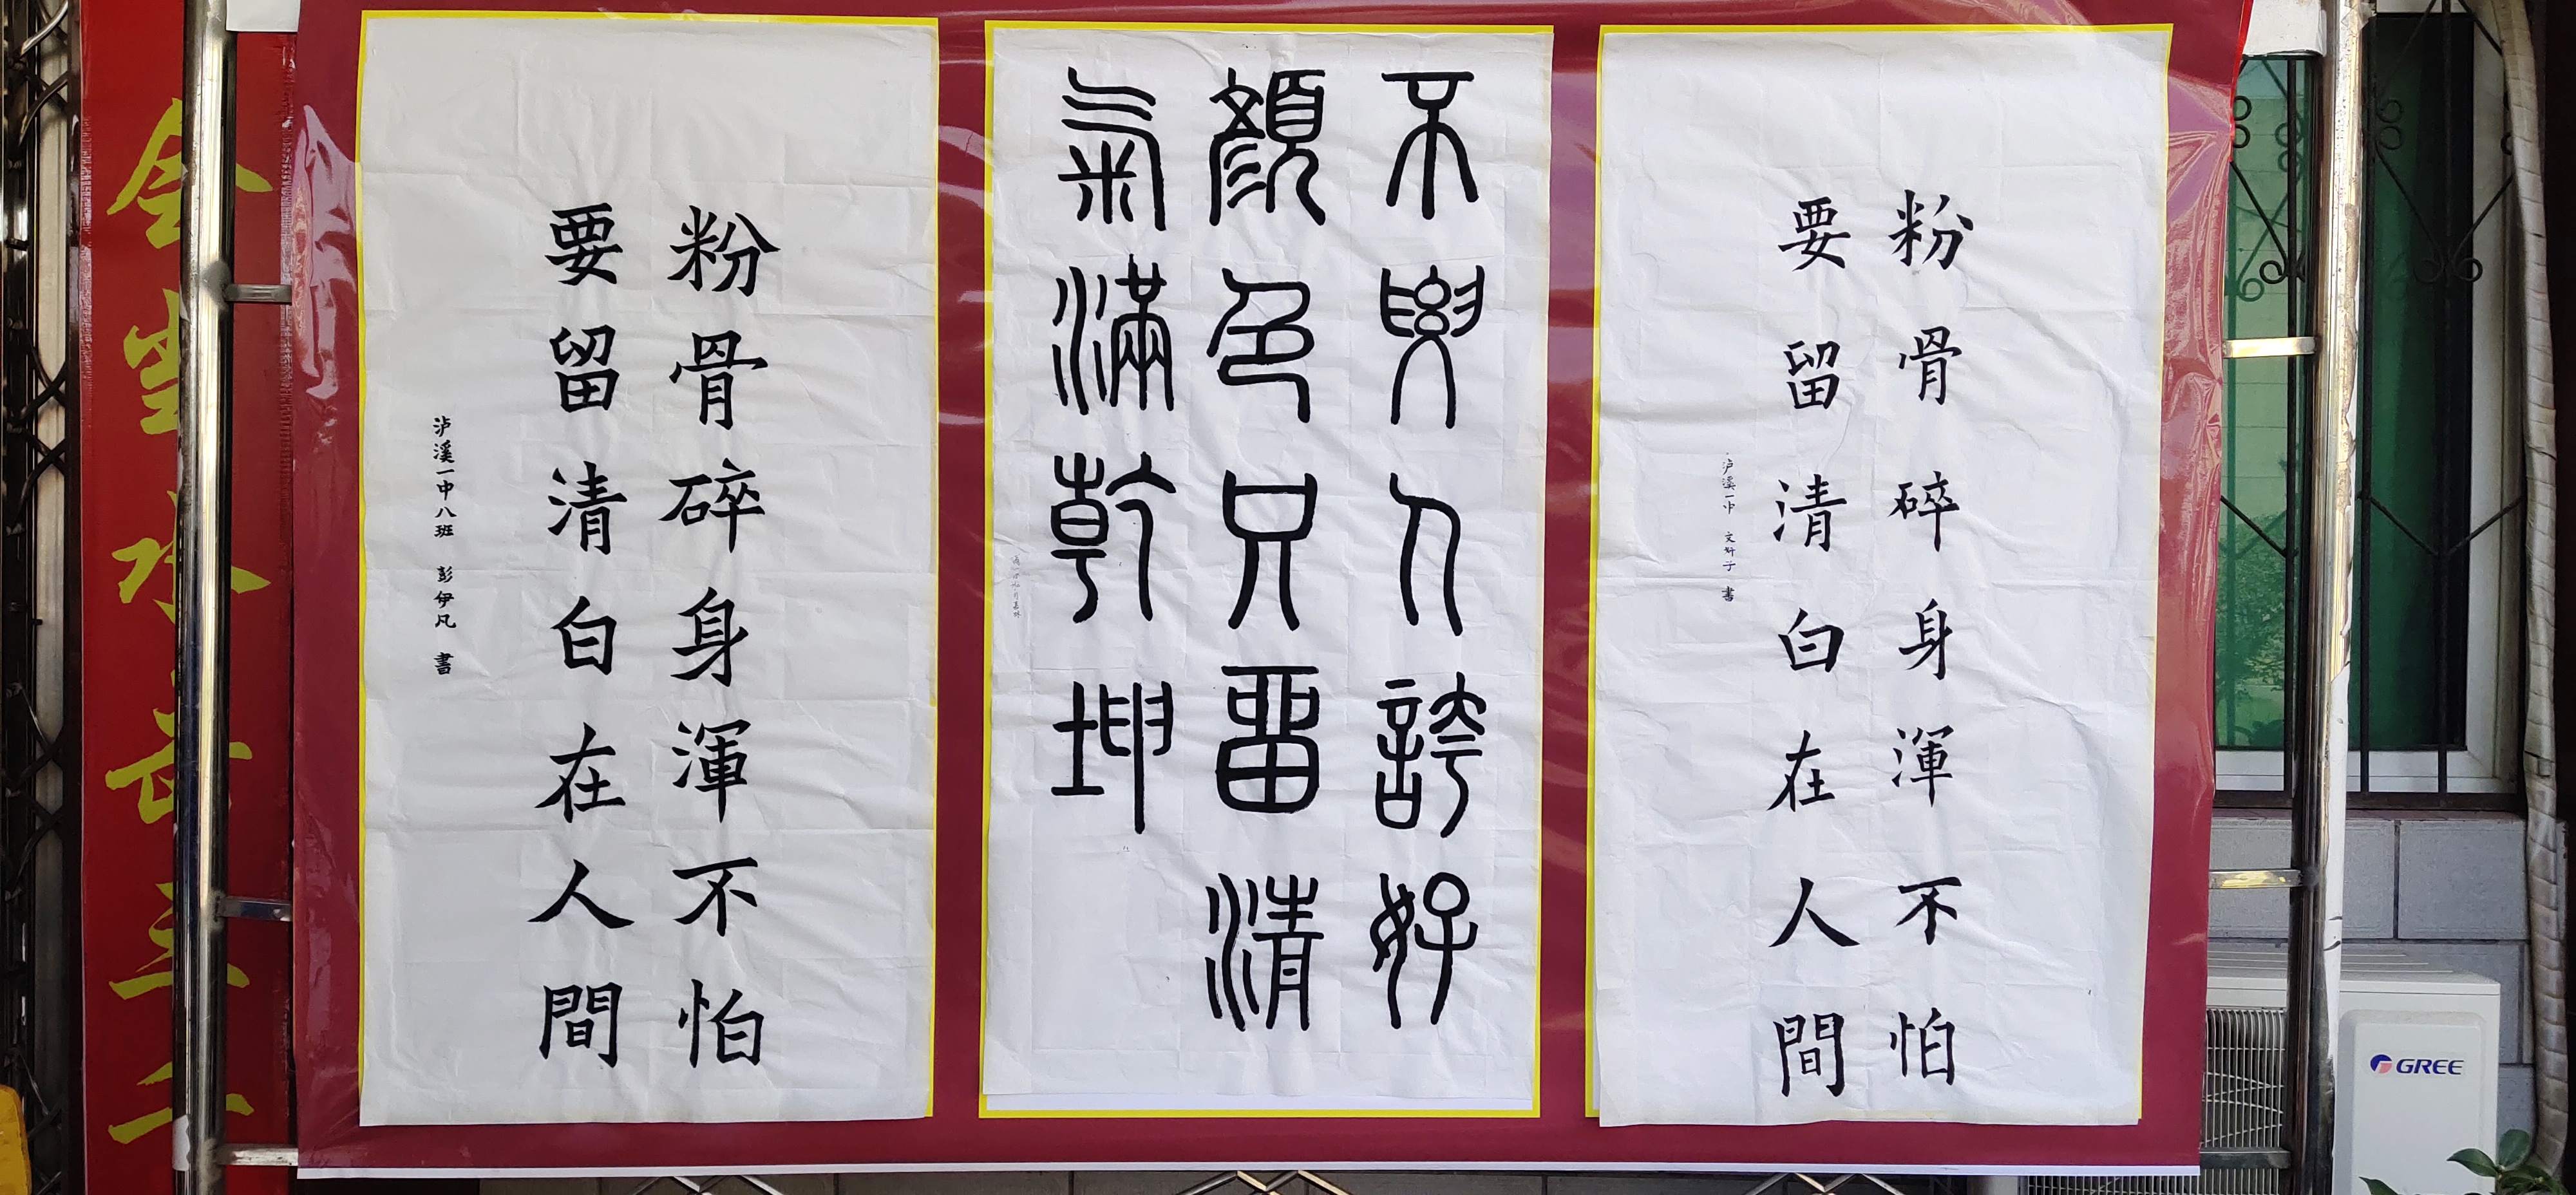 粉骨碎身渾不怕
要留清白在人間
泸溪一中 文妍子 書
不要人誇好
顏色只留清
氣滿乾坤
粉骨碎身渾不怕
要留清白在人間
泸溪一中八班 彭伊凡 書
GREE